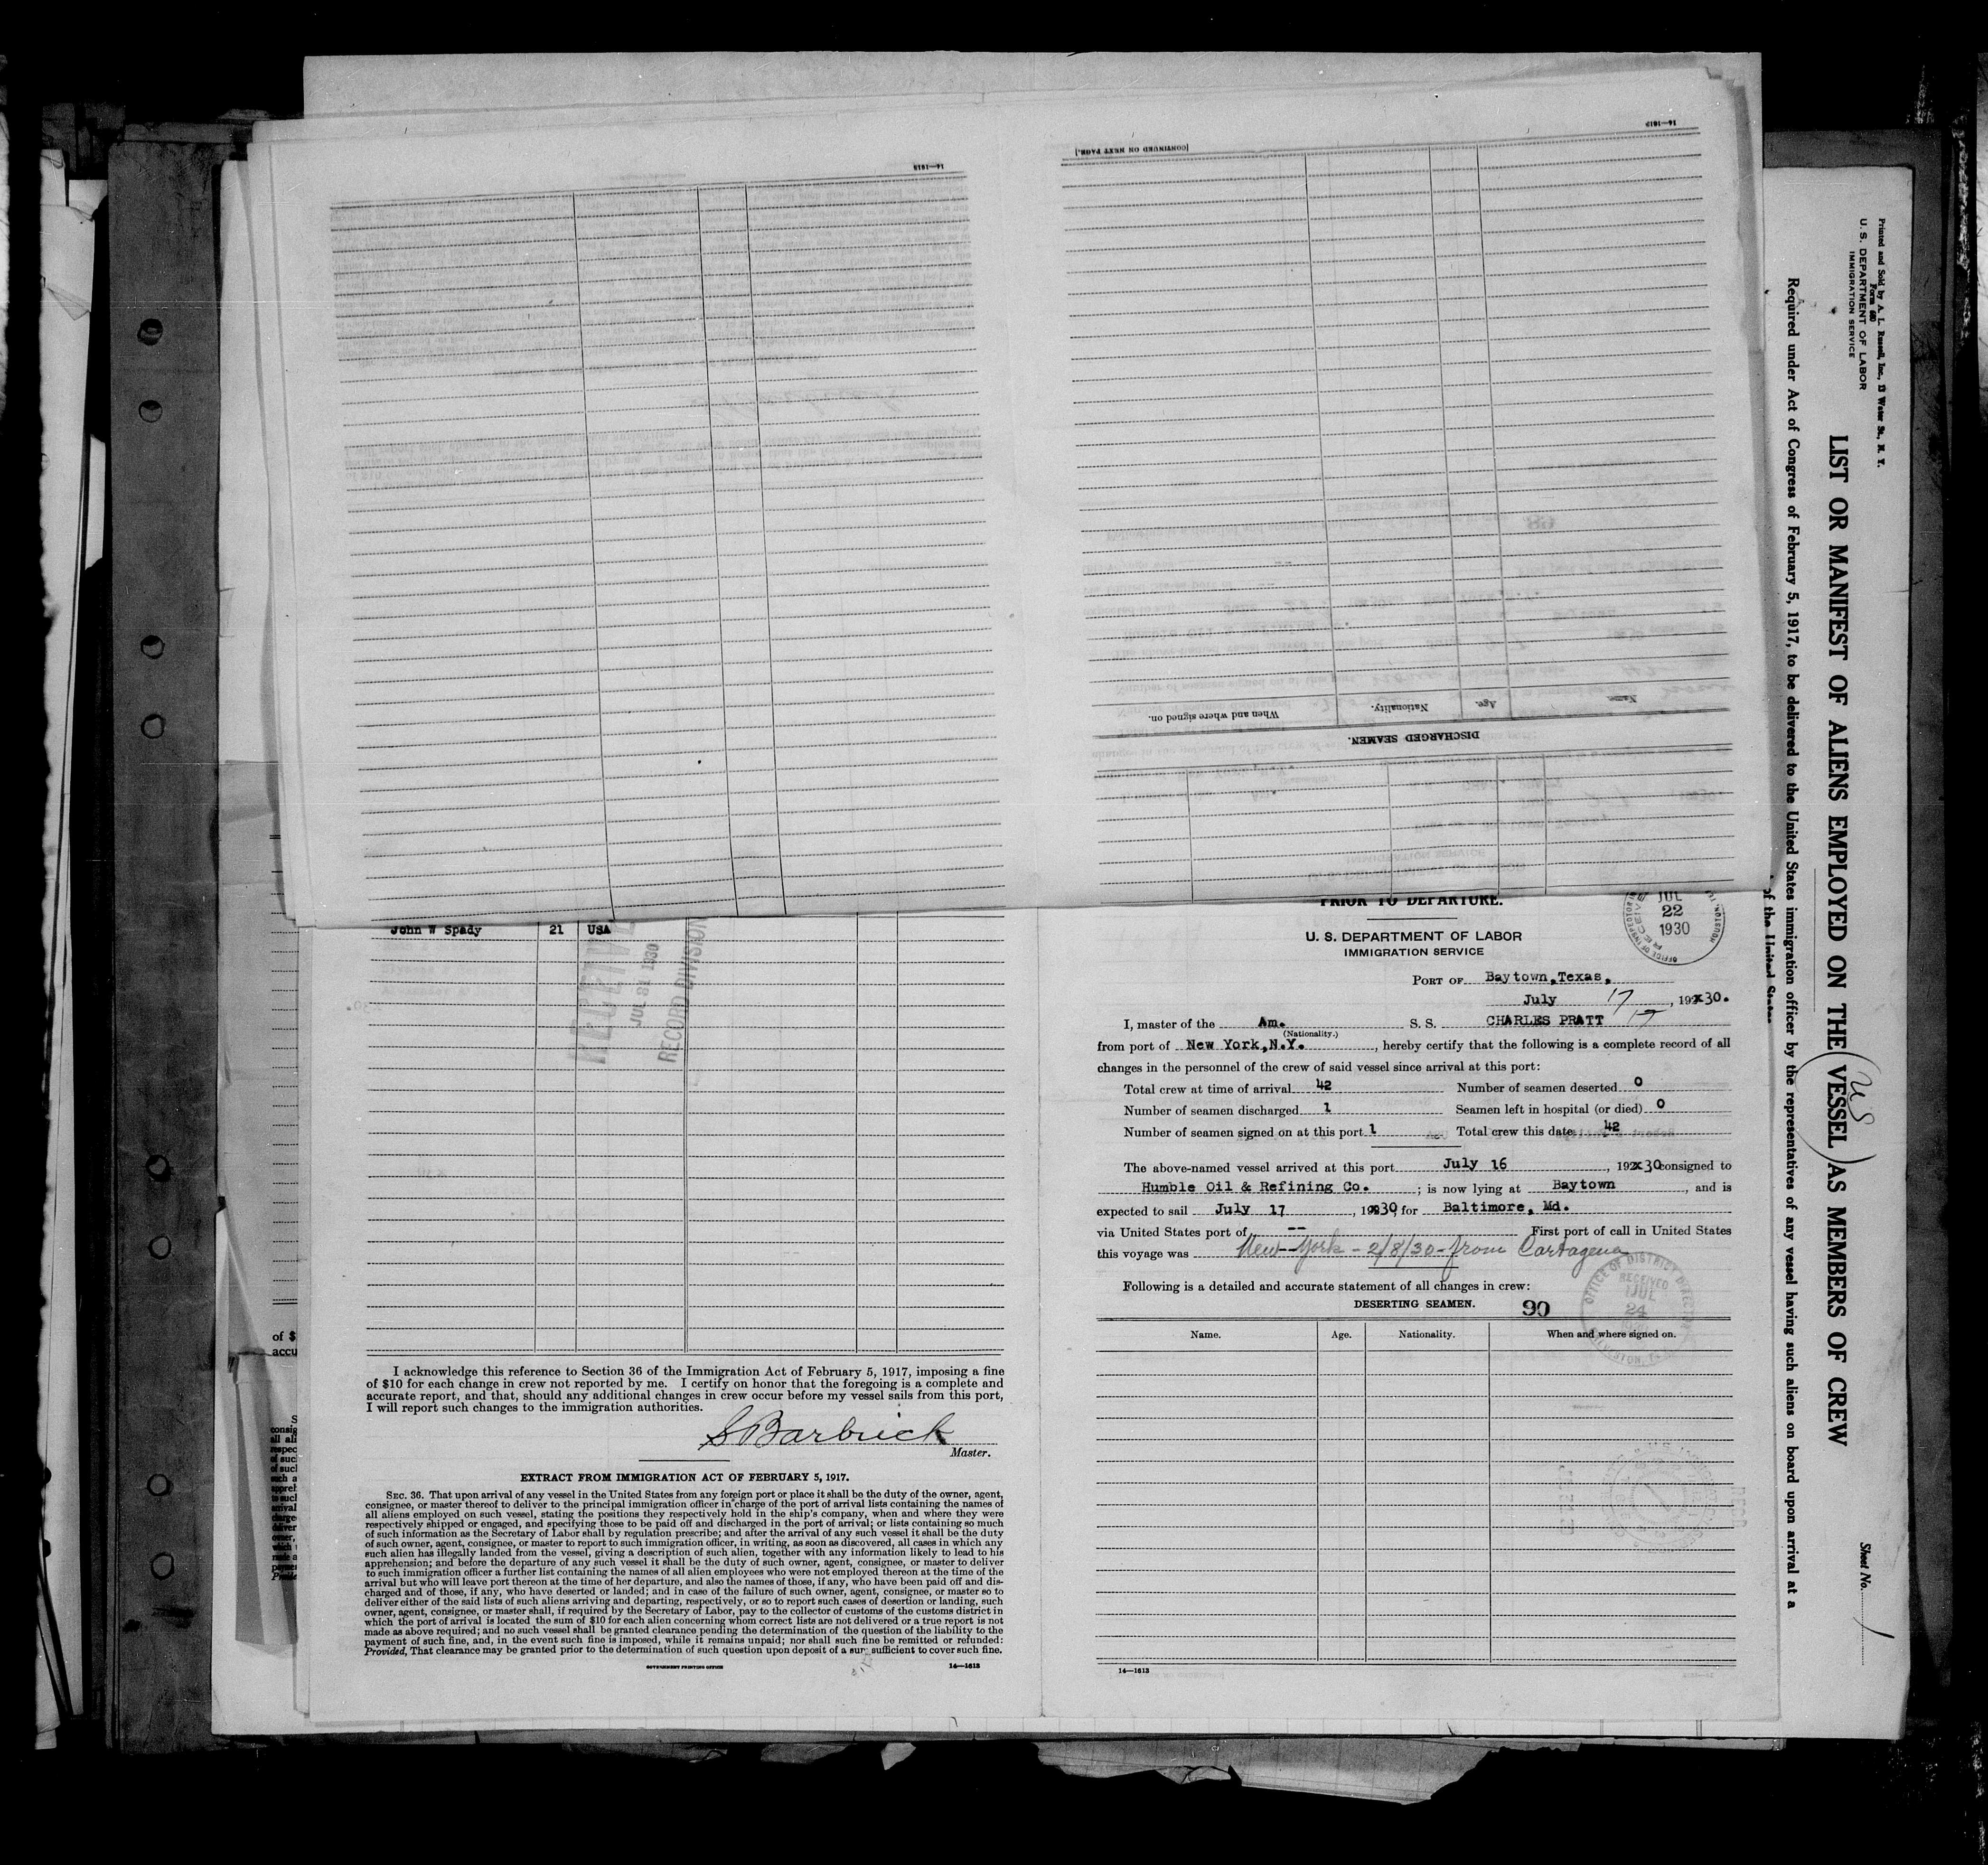 14—1613
[CONTINUED ON NEXT PAGE.]
14—1613
When and where signed on.
Nationality.
Age.
Name.
DISCHARGED SEAMEN.
John W Spady 21 USA
RECEIVED
JUL 31 1930
RECORD DIVISION
of $
accu
I acknowledge this reference to Section 36 of the Immigration Act of February 5, 1917, imposing a fine
of $10 for each change in crew not reported by me. I certify on honor that the foregoing is a complete and
accurate report, and that, should any additional changes in crew occur before my vessel sails from this port,
I will report such changes to the immigration authorities.
S Barbrick
Master.
EXTRACT FROM IMMIGRATION ACT OF FEBRUARY 5, 1917.
SEC. 36. That upon arrival of any vessel in the United States from any foreign port or place it shall be the duty of the owner, agent,
consignee, or master thereof to deliver to the principal immigration officer in charge of the port of arrival lists containing the names of
all aliens employed on such vessel, stating the positions they respectively hold in the ship's company, when and where they were
respectively shipped or engaged, and specifying those to be paid off and discharged in the port of arrival; or lists containing so much
of such information as the Secretary of Labor shall by regulation prescribe; and after the arrival of any such vessel it shall be the duty
of such owner, agent, consignee, or master to report to such immigration officer, in writing, as soon as discovered, all cases in which any
such alien has illegally landed from the vessel, giving a description of such alien, together with any information likely to lead to his
apprehension; and before the departure of any such vessel it shall be the duty of such owner, agent, consignee, or master to deliver
to such immigration officer a further list containing the names of all alien employees who were not employed thereon at the time of the
arrival but who will leave port thereon at the time of her departure, and also the names of those, if any, who have been paid off and dis-
charged and of those, if any, who have deserted or landed; and in case of the failure of such owner, agent, consignee, or master so to
deliver either of the said lists of such aliens arriving and departing, respectively, or so to report such cases of desertion or landing, such
owner, agent, consignee, or master shall, if required by the Secretary of Labor, pay to the collector of customs of the customs district in
which the port of arrival is located the sum of $10 for each alien concerning whom correct lists are not delivered or a true report is not
made as above required; and no such vessel shall be granted clearance pending the determination of the question of the liability to the
payment of such fine, and, in the event such fine is imposed, while it remains unpaid; nor shall such fine be remitted or refunded:
Provided, That clearance may be granted prior to the determination of such question upon deposit of a sum sufficient to cover such fine.
GOVERNMENT PRINTING OFFICE 14—1613
PRIOR TO DEPARTURE.
JUL
22
1930
U. S. DEPARTMENT OF LABOR
IMMIGRATION SERVICE
PORT OF Baytown, Texas,
July 17, 192x30.
17
I, master of the Am. S. S. CHARLES PRATT
(Nationality.)
from port of New York, N.Y., hereby certify that the following is a complete record of all
changes in the personnel of the crew of said vessel since arrival at this port:
Total crew at time of arrival 42 Number of seamen deserted 0
Number of seamen discharged 1 Seamen left in hospital (or died) 0
Number of seamen signed on at this port 1 Total crew this date 42
The above-named vessel arrived at this port July 16, 192x30 consigned to
Humble Oil & Refining Co.; is now lying at Baytown, and is
expected to sail July 17, 192x30, for Baltimore, Md.
via United States port of -- First port of call in United States
this voyage was New York - 2/8/30 - from Cartagena
Following is a detailed and accurate statement of all changes in crew:
OFFICE OF DISTRICT DIRECTOR
RECEIVED
JUL
24
DESERTING SEAMEN. 90
Name. Age. Nationality. When and where signed on.
14—1613
Printed and Sold by A. L. Russell, Inc., 13 Water St., N. Y.
Form 680
U. S. DEPARTMENT OF LABOR
IMMIGRATION SERVICE
LIST OR MANIFEST OF ALIENS EMPLOYED ON THE (VESSEL) AS MEMBERS OF CREW
US
Required under Act of Congress of February 5, 1917, to be delivered to the United States immigration officer by the representatives of any vessel having such aliens on board upon arrival at a
of the United States
Sheet No. 1